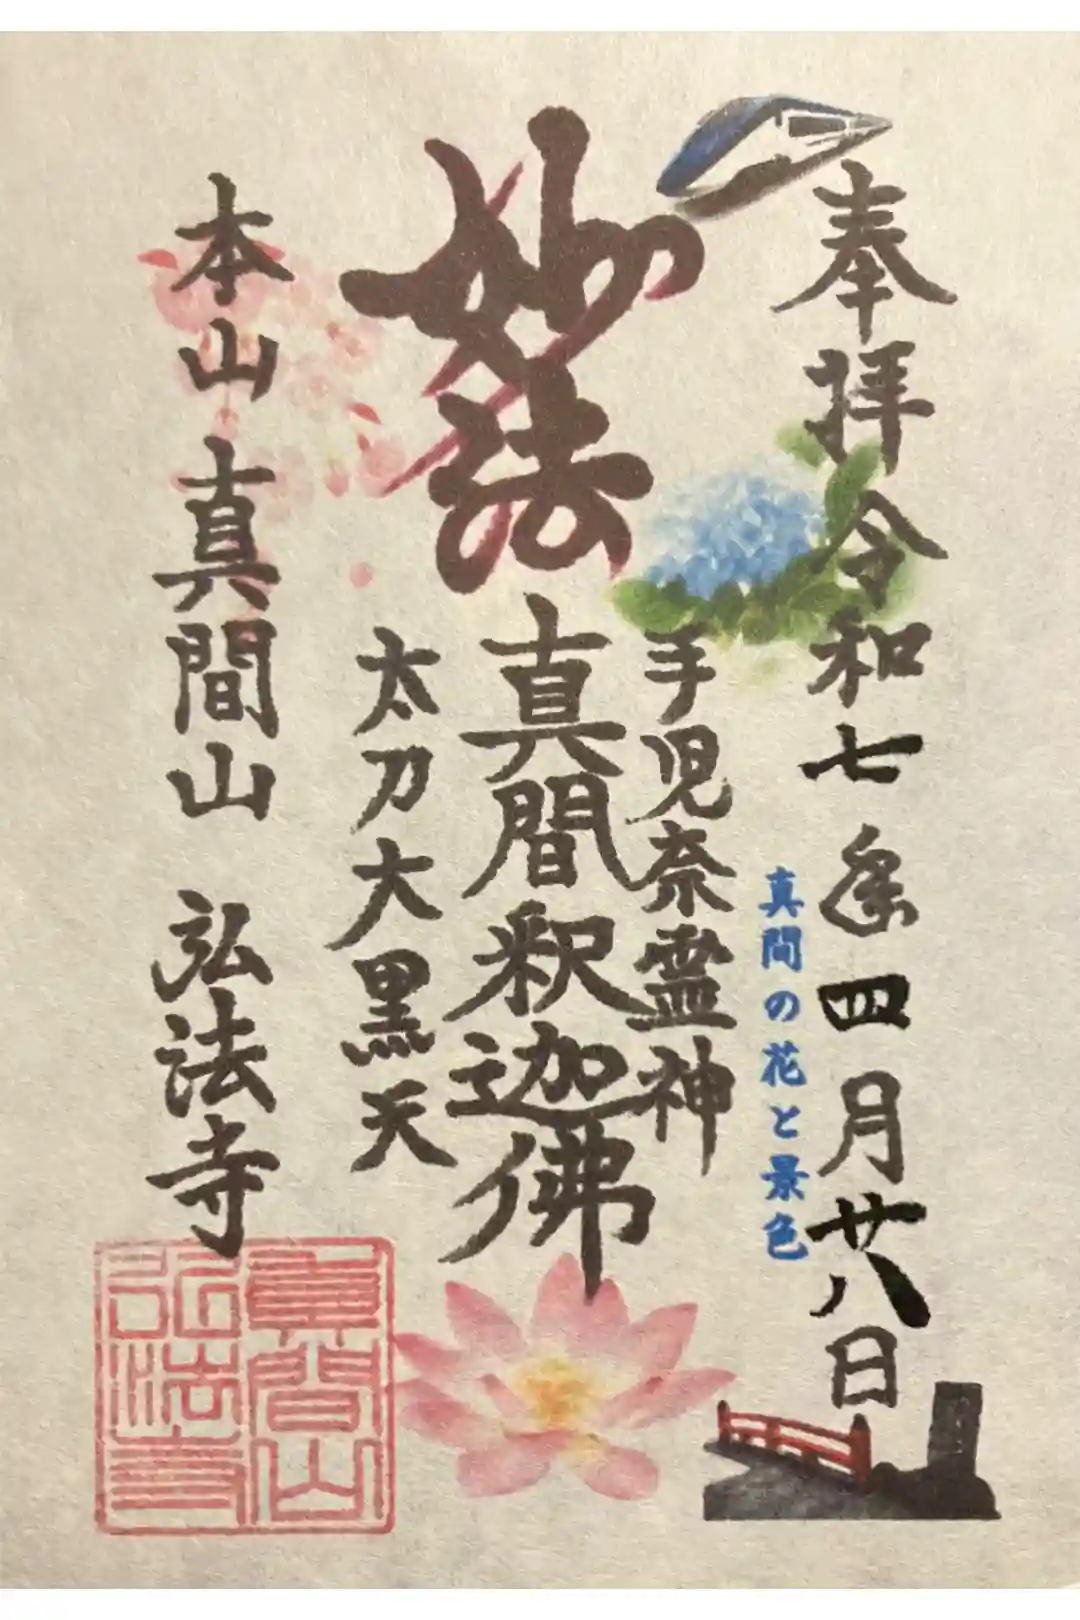 奉拝 令和七年四月廿八日
真間の花と景色
妙法
手児奈霊神
真間釈迦佛
太刀大黒天
本山 真間山 弘法寺
真間山
弘法寺